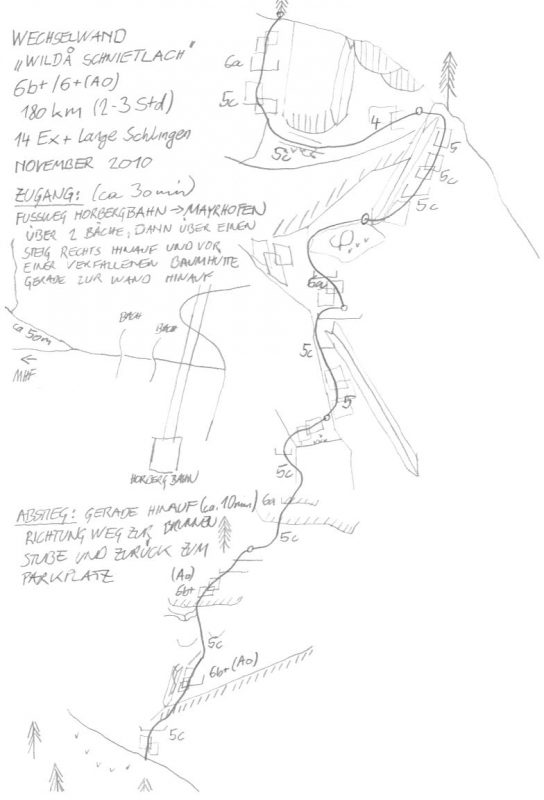 WECHSELWAND
„WILDÅ SCHNIETLACH"
6b+/6+(A0)
180 km (2-3 Std)
14 Ex + Lange Schlingen
NOVEMBER 2010
ZUGANG: (ca 30min)
FUSSWEG HORBERGBAHN → MAYRHOFEN
ÜBER 2 BÄCHE, DANN ÜBER EINEN
STEIG RECHTS HINAUF UND VOR
EINER VERFALLENEN BAUMHÜTTE
GERADE ZUR WAND HINAUF
ca 50m
BACH
BACH
← MHF
HORBERG BAHN
ABSTIEG: GERADE HINAUF (ca. 10min)
RICHTUNG WEG ZUR BRUNNEN
STUBE UND ZURÜCK ZUM
PARKPLATZ
6a
5c
5c
4
5
5c
5c
6a
5c
5
5c
6a
5c
(A0)
6b+
5c
6b+(A0)
5c